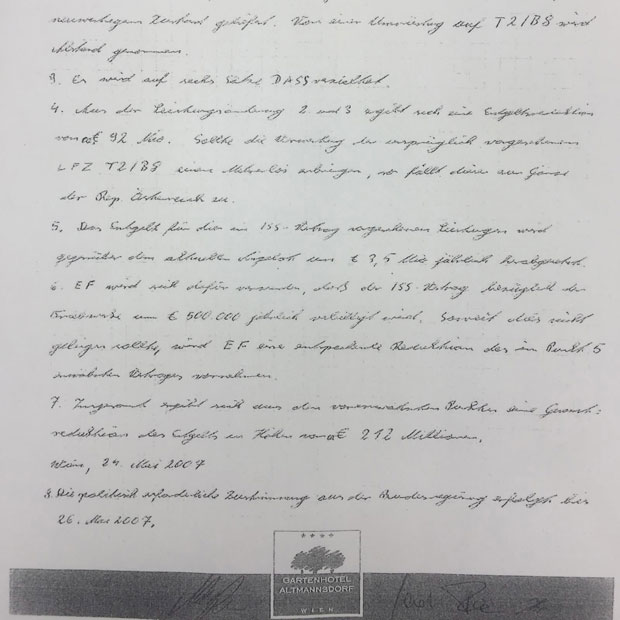 neuwertigem Zustand geliefert. Von einer Umrüstung auf T2/B8 wird
Abstand genommen.
3. Es wird auf sechs Sätze DASS verzichtet.
4. Aus der Leistungsänderung 2 und 3 ergibt sich eine Entgeltsreduktion
von € 92 Mio. Sollte die Verwertung der ursprünglich vorgesehenen
LFZ T2/B8 einen Mehrerlös erbringen, so fällt dieser zur Gänze
der Rep. Österreich zu.
5. Das Entgelt für die im ISS-Vertrag vorgesehenen Leistungen wird
gegenüber dem aktuellen Angebot um € 3,5 Mio jährlich herabgesetzt.
6. EF wird sich dafür verwenden, daß der ISS-Vertrag bezüglich der
Triebwerke um € 500.000 jährlich verbilligt wird. Soweit dies nicht
gelingen sollte, wird EF eine entsprechende Reduktion des im Punkt 5
erwähnten Vertrages vornehmen.
7. Insgesamt ergibt sich aus den vorerwähnten Punkten eine Gesamt:
reduktion des Entgelts in Höhe von € 212 Millionen.
Wien, 24. Mai 2007
8. Die politisch erforderliche Zustimmung aus der Bundesregierung erfolgt bis
26. Mai 2007.
GARTENHOTEL
ALTMANNSDORF
WIEN